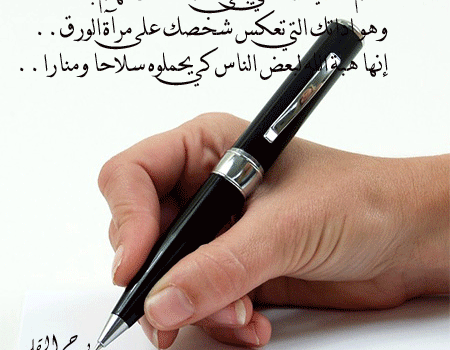 وهو أداتك التي تعكس شخصك على مرآة الورق . .
إنها هبة الله لبعض الناس كي يحملوه سلاحا ومنارا . .